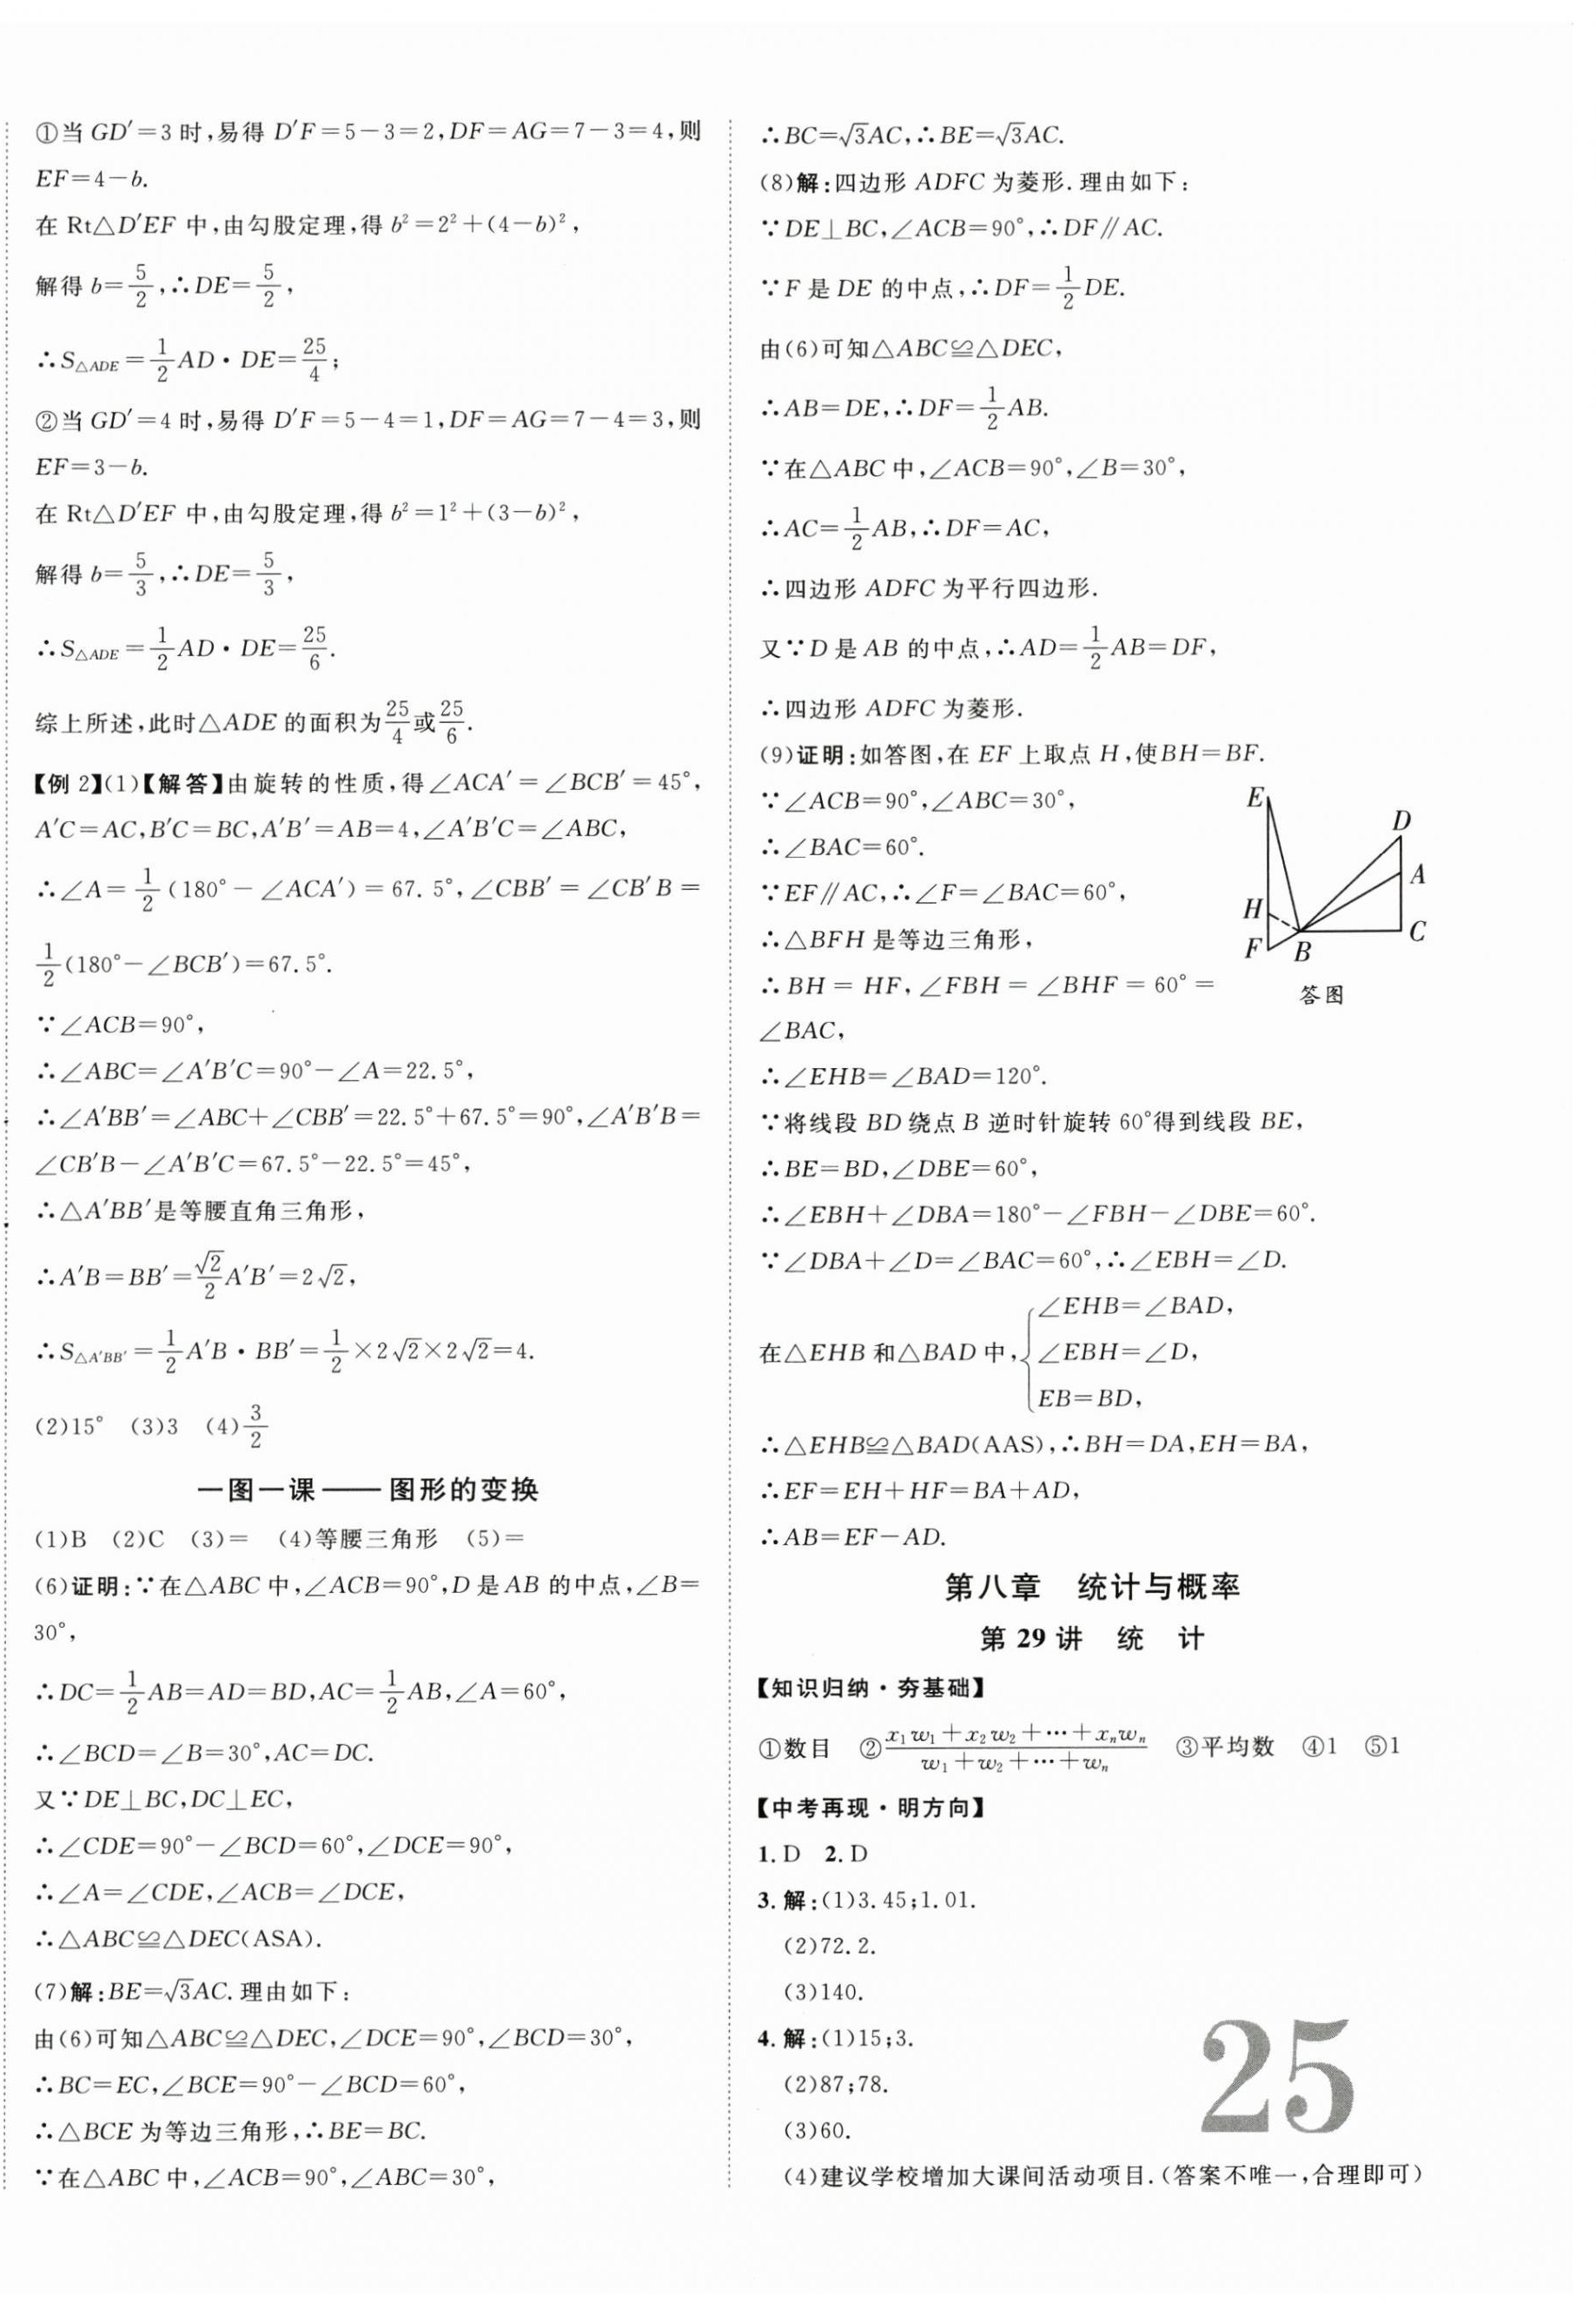 ①当 GD′=3 时,易得 D′F=5-3=2,DF=AG=7-3=4,则
EF=4-b.
在 Rt△D′EF 中,由勾股定理,得 b²=2²+(4-b)²,
解得 b=5/2,∴DE=5/2,
∴S△ADE=1/2 AD·DE=25/4;
②当 GD′=4 时,易得 D′F=5-4=1,DF=AG=7-4=3,则
EF=3-b.
在 Rt△D′EF 中,由勾股定理,得 b²=1²+(3-b)²,
解得 b=5/3,∴DE=5/3,
∴S△ADE=1/2 AD·DE=25/6.
综上所述,此时△ADE 的面积为25/4或25/6.
【例 2】(1)【解答】由旋转的性质,得∠ACA′=∠BCB′=45°,
A′C=AC,B′C=BC,A′B′=AB=4,∠A′B′C=∠ABC,
∴∠A=1/2(180°-∠ACA′)=67.5°,∠CBB′=∠CB′B=
1/2(180°-∠BCB′)=67.5°.
∵∠ACB=90°,
∴∠ABC=∠A′B′C=90°-∠A=22.5°,
∴∠A′BB′=∠ABC+∠CBB′=22.5°+67.5°=90°,∠A′B′B=
∠CB′B-∠A′B′C=67.5°-22.5°=45°,
∴△A′BB′是等腰直角三角形,
∴A′B=BB′=√2/2 A′B′=2√2,
∴S△A′BB′=1/2 A′B·BB′=1/2×2√2×2√2=4.
(2)15° (3)3 (4)3/2
一图一课——图形的变换
(1)B (2)C (3)= (4)等腰三角形 (5)=
(6)证明:∵在△ABC 中,∠ACB=90°,D 是 AB 的中点,∠B=
30°,
∴DC=1/2 AB=AD=BD,AC=1/2 AB,∠A=60°,
∴∠BCD=∠B=30°,AC=DC.
又∵DE⊥BC,DC⊥EC,
∴∠CDE=90°-∠BCD=60°,∠DCE=90°,
∴∠A=∠CDE,∠ACB=∠DCE,
∴△ABC≌△DEC(ASA).
(7)解:BE=√3AC.理由如下:
由(6)可知△ABC≌△DEC,∠DCE=90°,∠BCD=30°,
∴BC=EC,∠BCE=90°-∠BCD=60°,
∴△BCE 为等边三角形,∴BE=BC.
∵在△ABC 中,∠ACB=90°,∠ABC=30°,
∴BC=√3AC,∴BE=√3AC.
(8)解:四边形 ADFC 为菱形.理由如下:
∵DE⊥BC,∠ACB=90°,∴DF∥AC.
∵F 是 DE 的中点,∴DF=1/2 DE.
由(6)可知△ABC≌△DEC,
∴AB=DE,∴DF=1/2 AB.
∵在△ABC 中,∠ACB=90°,∠B=30°,
∴AC=1/2 AB,∴DF=AC,
∴四边形 ADFC 为平行四边形.
又∵D 是 AB 的中点,∴AD=1/2 AB=DF,
∴四边形 ADFC 为菱形.
(9)证明:如答图,在 EF 上取点 H,使BH=BF.
∵∠ACB=90°,∠ABC=30°,
∴∠BAC=60°.
∵EF∥AC,∴∠F=∠BAC=60°,
∴△BFH 是等边三角形,
∴BH=HF,∠FBH=∠BHF=60°=
∠BAC,
E
D
A
H
C
F
B
答图
∴∠EHB=∠BAD=120°.
∵将线段 BD 绕点 B 逆时针旋转 60°得到线段 BE,
∴BE=BD,∠DBE=60°,
∴∠EBH+∠DBA=180°-∠FBH-∠DBE=60°.
∵∠DBA+∠D=∠BAC=60°,∴∠EBH=∠D.
∠EHB=∠BAD,
在△EHB 和△BAD 中,{∠EBH=∠D,
EB=BD,
∴△EHB≌△BAD(AAS),∴BH=DA,EH=BA,
∴EF=EH+HF=BA+AD,
∴AB=EF-AD.
第八章 统计与概率
第 29 讲 统 计
【知识归纳·夯基础】
①数目 ②(x₁w₁+x₂w₂+…+xₙwₙ)/(w₁+w₂+…+wₙ) ③平均数 ④1 ⑤1
【中考再现·明方向】
1.D 2.D
3.解:(1)3.45;1.01.
(2)72.2.
(3)140.
4.解:(1)15;3.
(2)87;78.
(3)60.
(4)建议学校增加大课间活动项目.(答案不唯一,合理即可)
25